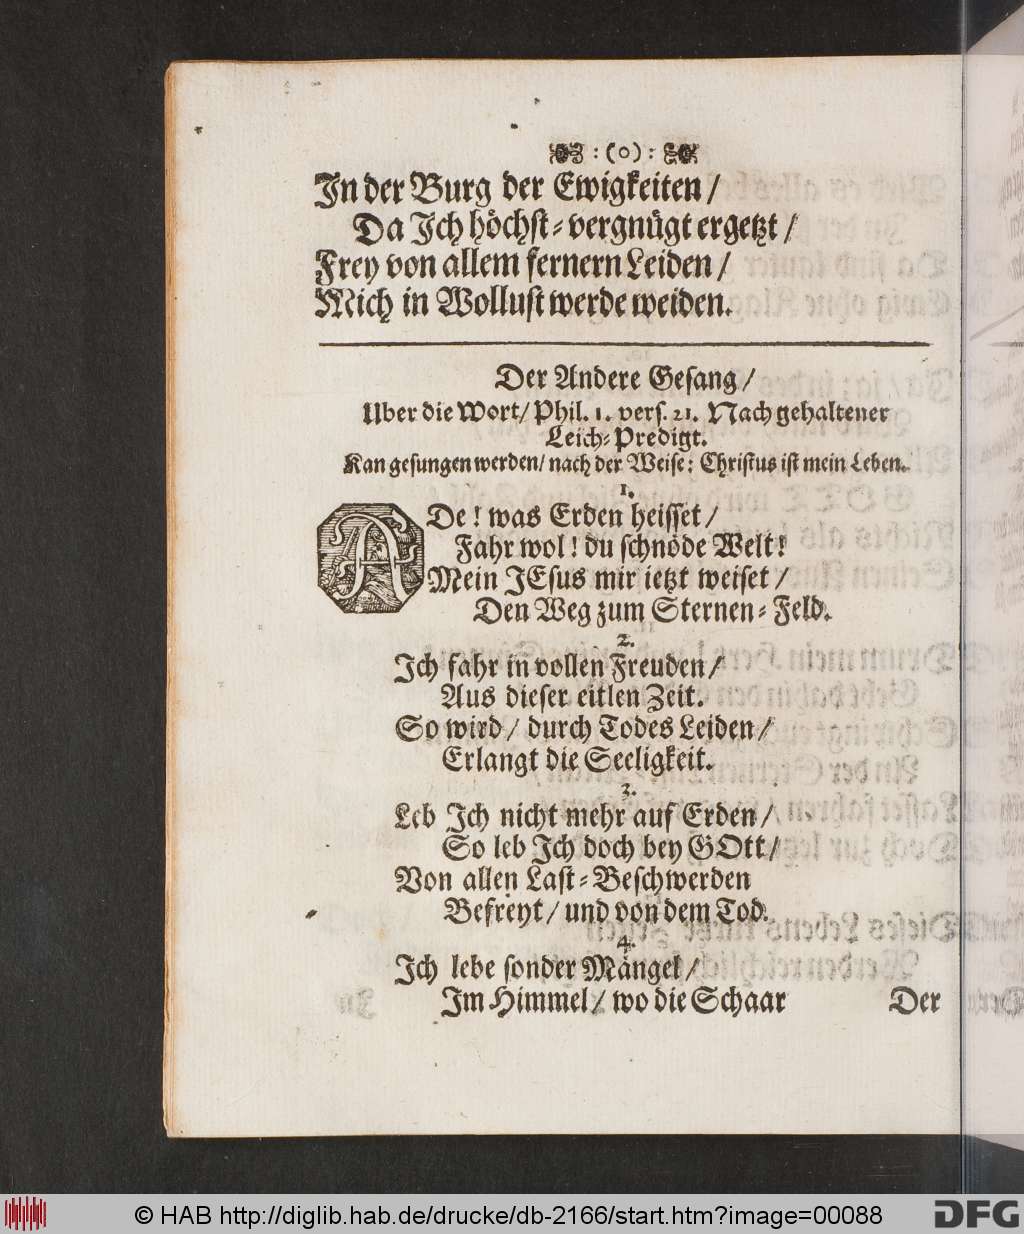 :(o):
In der Burg der Ewigkeiten/
Da Ich höchst-vergnügt ergetzt/
Frey von allem fernern Leiden/
Mich in Wollust werde weiden.
Der Andere Gesang/
Uber die Wort/ Phil. 1. vers. 21. Nach gehaltener
Leich-Predigt.
Kan gesungen werden/ nach der Weise: Christus ist mein Leben.
1.
ADe! was Erden heisset/
Fahr wol! du schnöde Welt!
Mein JEsus mir ietzt weiset/
Den Weg zum Sternen-Feld.
2.
Ich fahr in vollen Freuden/
Aus dieser eitlen Zeit.
So wird/ durch Todes Leiden/
Erlangt die Seeligkeit.
3.
Leb Ich nicht mehr auf Erden/
So leb Ich doch bey GOtt/
Von allen Last-Beschwerden
Befreyt/ und von dem Tod.
4.
Ich lebe sonder Mängel/
Im Himmel/ wo die Schaar
Der
© HAB http://diglib.hab.de/drucke/db-2166/start.htm?image=00088
DFG